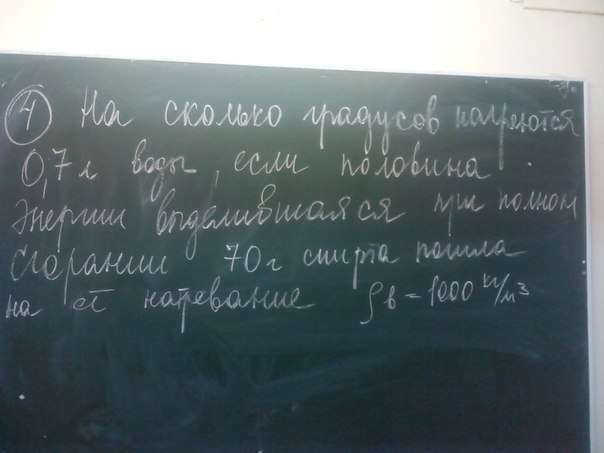 ④ На сколько градусов нагреются
0,7 л воды, если половина
энергии выделившаяся при полном
сгорании 70 г спирта пошла
на её нагревание ρв = 1000 кг/м³